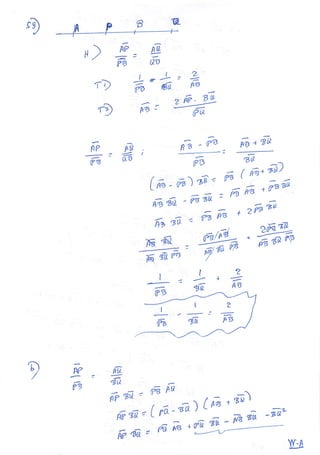 59)
A P B Q
H) AP/PB = AQ/QB
T1) 1/PB - 1/BQ = 2/AB
T2) AB = 2 AP · BQ / PQ
AP/PB = AQ/QB ; AB - PB / PB = AB + BQ / BQ
(AB - PB) BQ = PB (AB + BQ)
AB BQ - PB BQ = PB AB + PB BQ
AB BQ = PB AB + 2 PB BQ
AB BQ / AB BQ PB = PB AB / AB BQ PB + 2 PB BQ / AB BQ PB
1/PB = 1/BQ + 2/AB
1/PB - 1/BQ = 2/AB
b) AP/PB = AQ/BQ
AP BQ = PB AQ
AP BQ = (PQ - BQ) (AB + BQ)
AP BQ = PQ AB + PQ BQ - AB BQ - BQ²
W-A